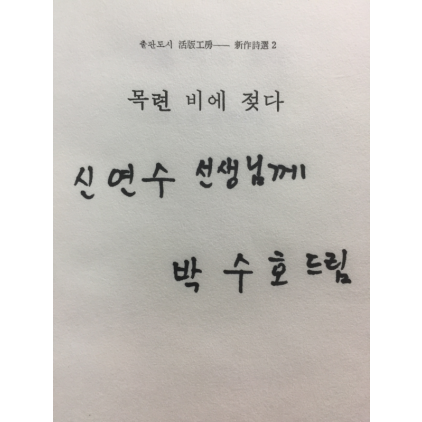 출판도시 活版工房── 新作詩選 2
목련 비에 젖다
신연수 선생님께
박수호 드림